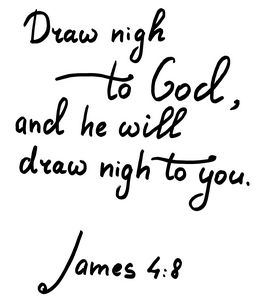 Draw nigh
to God,
and he will
draw nigh to you.
James 4:8